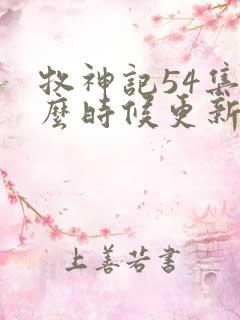 牧神記54集
麼時候更新
上善若書